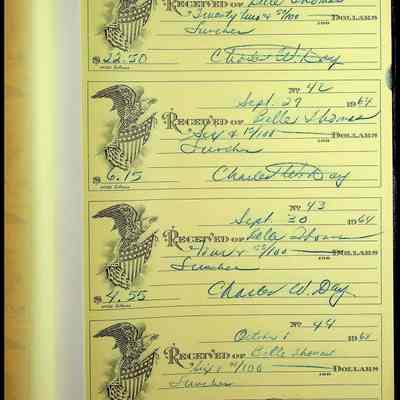 RECEIVED OF Belle Thomas
Twenty two & 50/100 DOLLARS
100
Luncheon
$22.50 Charles W. Day
No 42
Sept. 29 1964
RECEIVED OF Belle Thomas
Six & 15/100 DOLLARS
100
Luncheon
$6.15 Charles W. Day
No 43
Sept. 30 1964
RECEIVED OF Belle Thomas
Four & 55/100 DOLLARS
100
Luncheon
$4.55 Charles W. Day
No 44
October 1 1964
RECEIVED OF Belle Thomas
Six & /100 DOLLARS
100
Luncheon